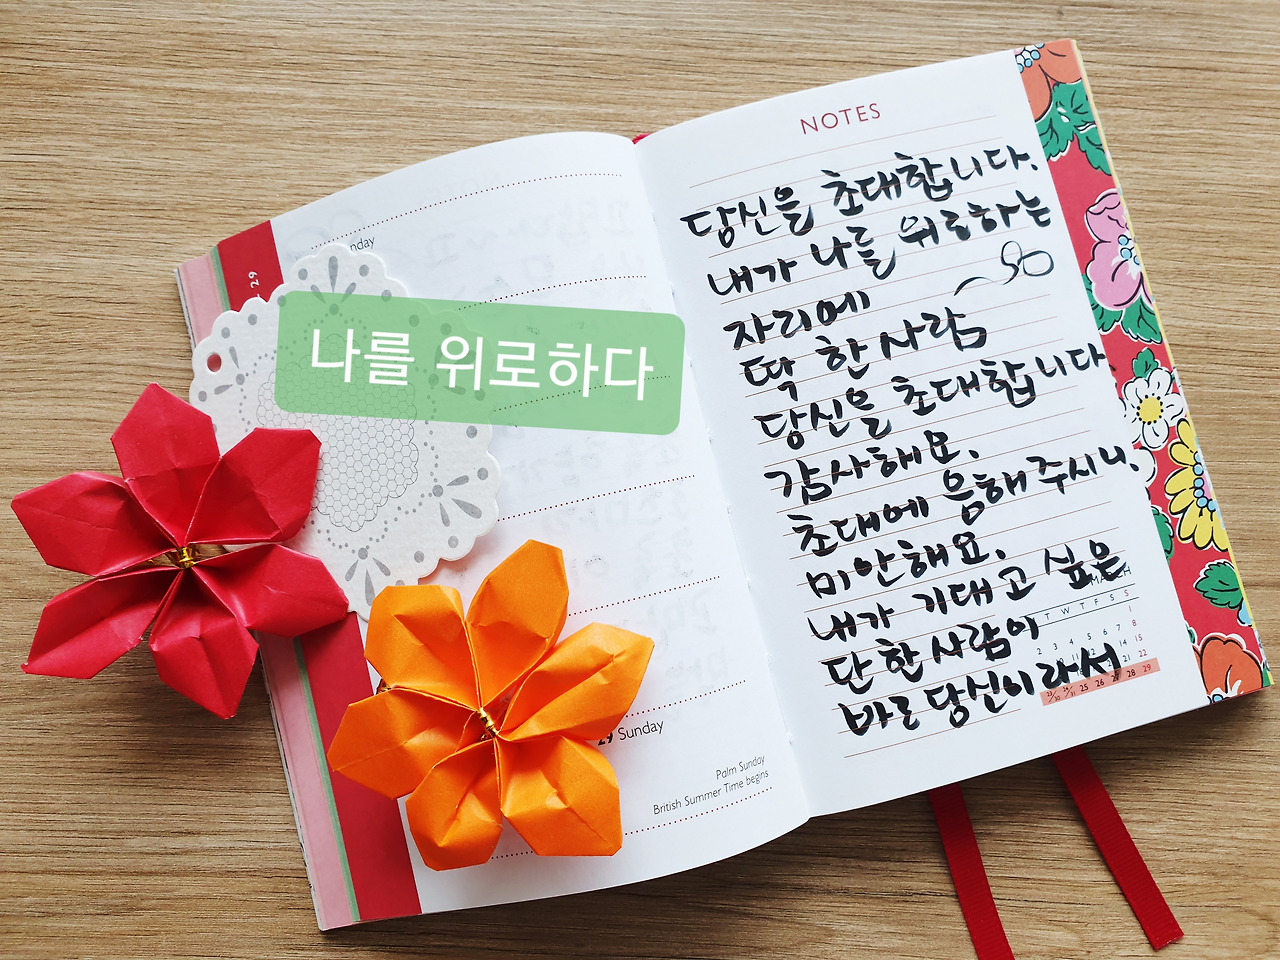 nday
29
나를 위로하다
29 Sunday
Palm Sunday
British Summer Time begins
NOTES
당신을 초대합니다.
내가 나를 위로하는
자리에
딱 한 사람
당신을 초대합니다
감사해요.
초대에 응해주시니.
미안해요.
내가 기대고 싶은
단 한 사람이
바로 당신이라서
MARCH
T W T F S S
1
2 3 4 5 6 7 8
15
21 22
23/30 24/31 25 26 27 28 29